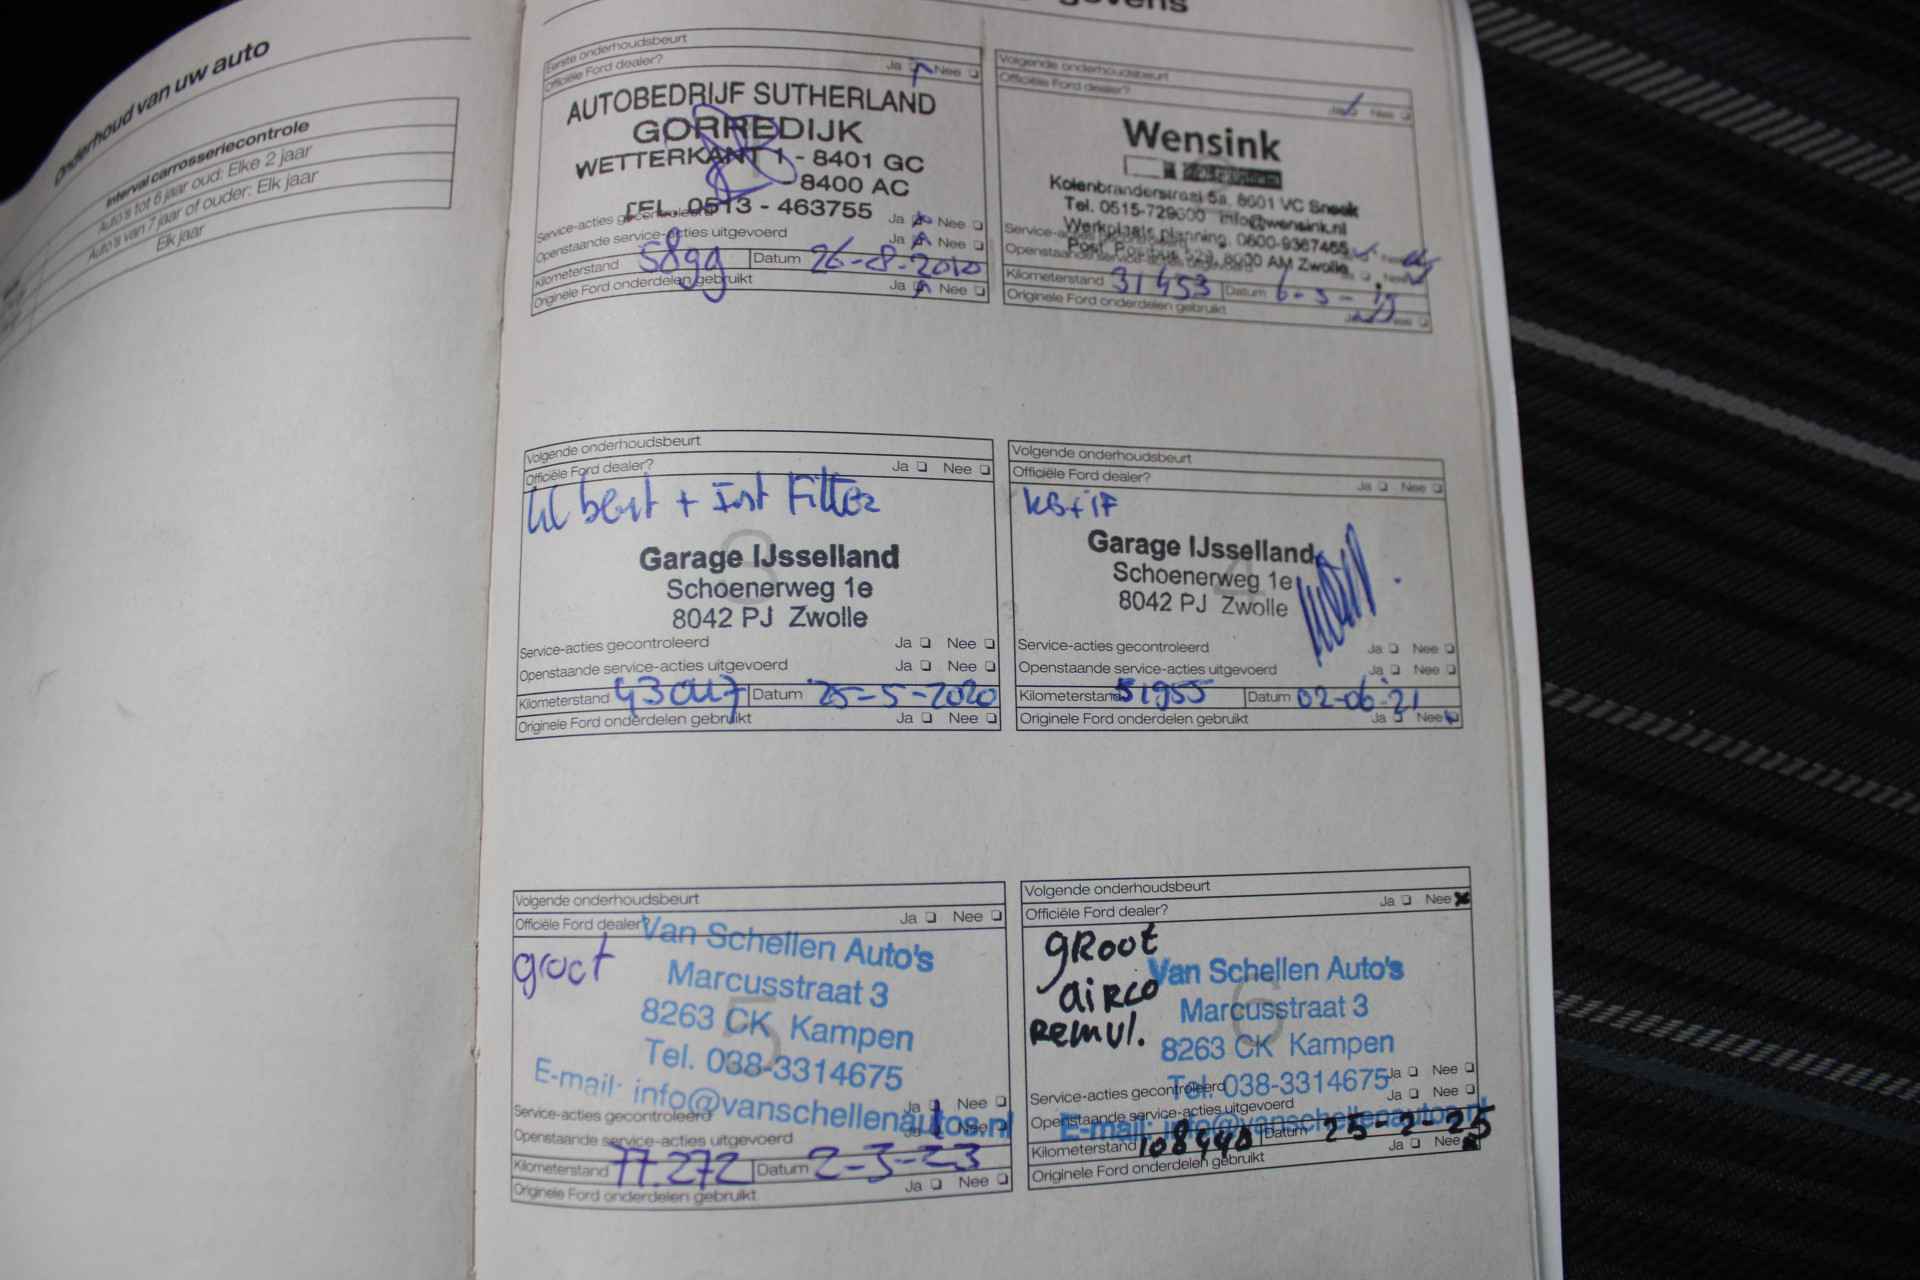 Onderhoud van uw auto
Interval carrosseriecontrole
Auto's tot 6 jaar oud: Elke 2 jaar
Auto's van 7 jaar of ouder: Elk jaar
Elk jaar
Eerste onderhoudsbeurt
Officiële Ford dealer? Ja Nee
AUTOBEDRIJF SUTHERLAND
GORREDIJK
WETTERKANT 1 - 8401 GC
8400 AC
TEL. 0513 - 463755
Service-acties gecontroleerd Ja Nee
Openstaande service-acties uitgevoerd Ja Nee
Kilometerstand 5899 Datum 26-8-2010
Originele Ford onderdelen gebruikt Ja Nee
Volgende onderhoudsbeurt
Officiële Ford dealer?
Ja Nee
Wensink
Kolenbranderstraat 5a, 8601 VC Sneek
Tel. 0515-729000 info@wensink.nl
Werkplaats planning. 0800-9367465
8000 AM Zwolle
Kilometerstand 31453 Datum
Originele Ford onderdelen gebruikt
Volgende onderhoudsbeurt
Officiële Ford dealer? Ja Nee
beurt + Int Filter
3
Garage IJsselland
Schoenerweg 1e
8042 PJ Zwolle
Service-acties gecontroleerd Ja Nee
Openstaande service-acties uitgevoerd Ja Nee
Kilometerstand 43047 Datum 25-5-2020
Originele Ford onderdelen gebruikt Ja Nee
Volgende onderhoudsbeurt
Officiële Ford dealer? Ja Nee
KB+IF
4
Garage IJsselland
Schoenerweg 1e
8042 PJ Zwolle
Service-acties gecontroleerd Ja Nee
Openstaande service-acties uitgevoerd Ja Nee
Kilometerstand 51955 Datum 02-06-21
Originele Ford onderdelen gebruikt Ja Nee
Volgende onderhoudsbeurt
Officiële Ford dealer? Ja Nee
groot
5
Van Schellen Auto's
Marcusstraat 3
8263 CK Kampen
Tel. 038-3314675
E-mail: info@vanschellenautos.nl
Service-acties gecontroleerd Ja Nee
Openstaande service-acties uitgevoerd Ja Nee
Kilometerstand 77.272 Datum 2-3-23
Originele Ford onderdelen gebruikt Ja Nee
Volgende onderhoudsbeurt
Officiële Ford dealer? Ja Nee
groot
airco
Remvl.
6
Van Schellen Auto's
Marcusstraat 3
8263 CK Kampen
Tel. 038-3314675
E-mail: info@vanschellenautos.nl
Service-acties gecontroleerd Ja Nee
Openstaande service-acties uitgevoerd Ja Nee
Kilometerstand Datum 25-2-25
Originele Ford onderdelen gebruikt Ja Nee